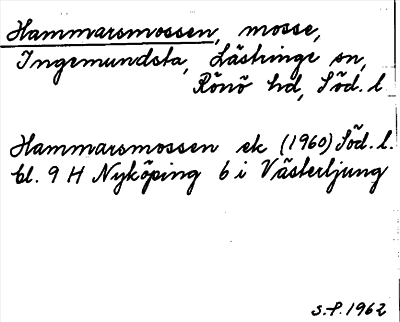 Hammarsmossen, mosse,
Ingemundsta, Lästringe sn,
Rönö hd, Söd. l
Hammarsmossen ek (1960) Söd. l.
bl. 9 H Nyköping 6 i Västerljung
S.F. 1962